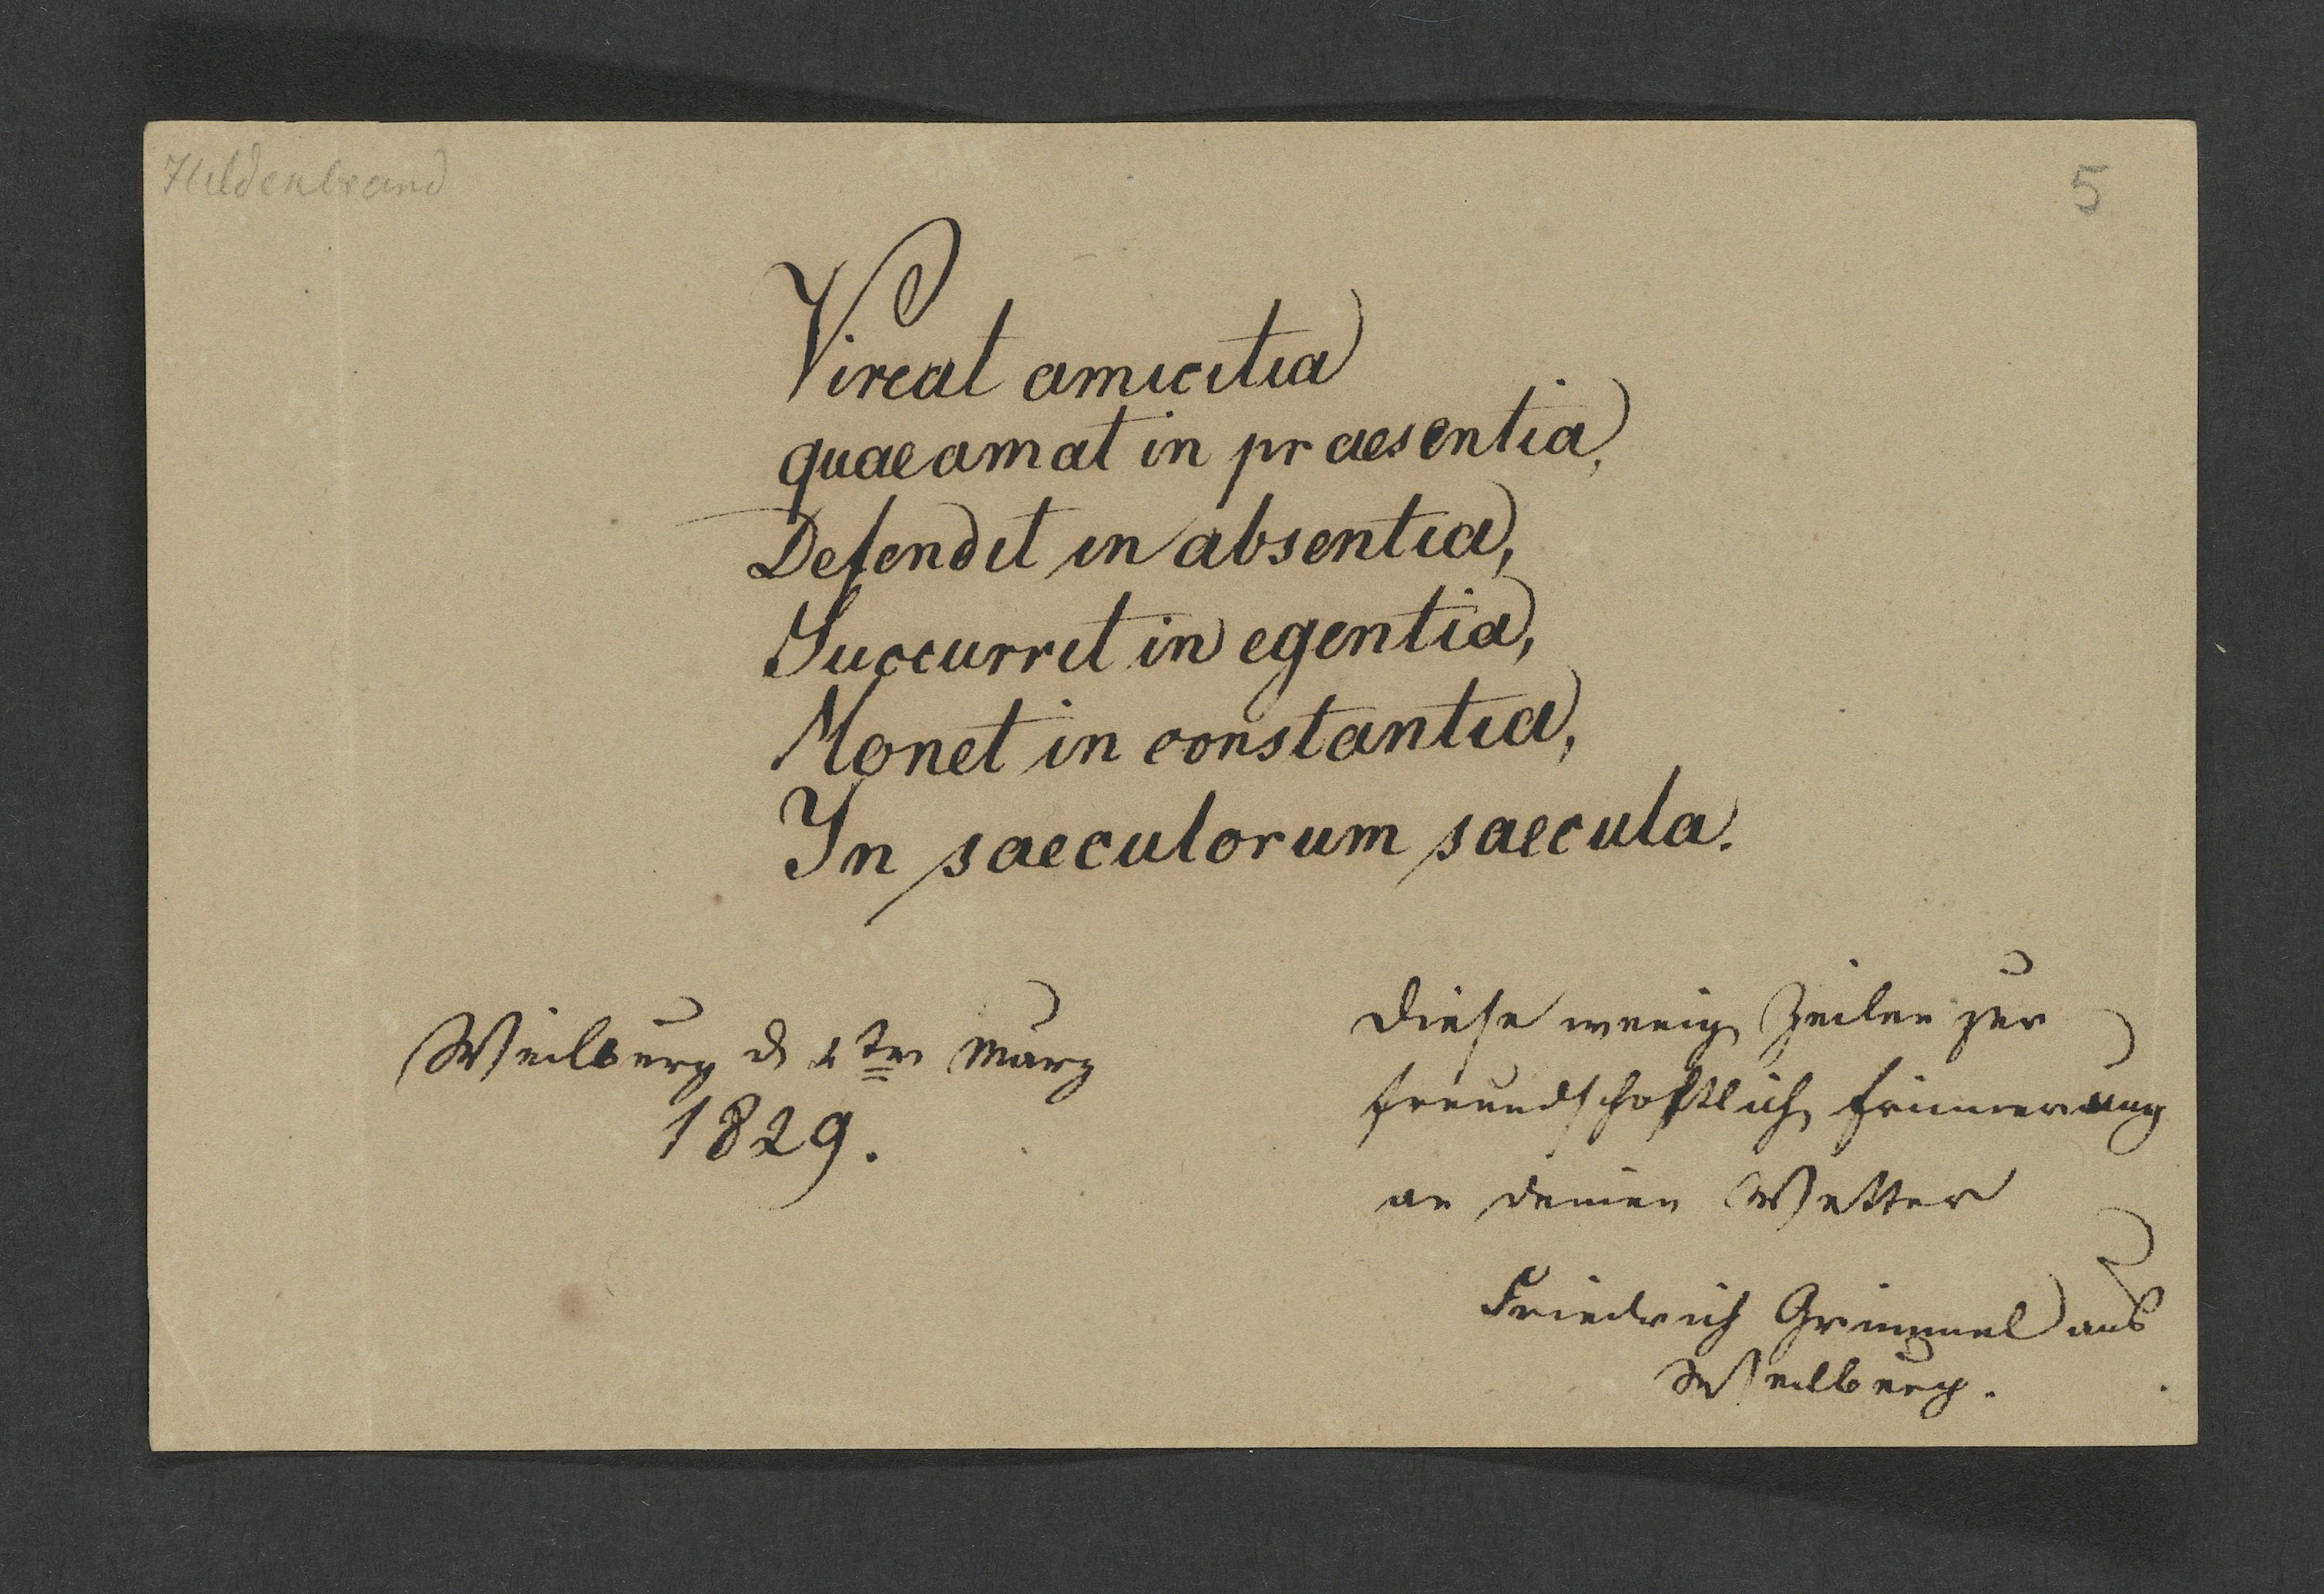 Hildenbrand
5
Vireat amicitia
quae amat in praesentia,
Defendit in absentia,
Succurrit in egentia,
Monet in constantia,
In saeculorum saecula.
Weilburg d 1ten März
1829.
Diese wenig Zeilen zur
freundschaftlich Erinnerung
an deinen Vetter
Friedrich Grimmel aus
Weilburg.